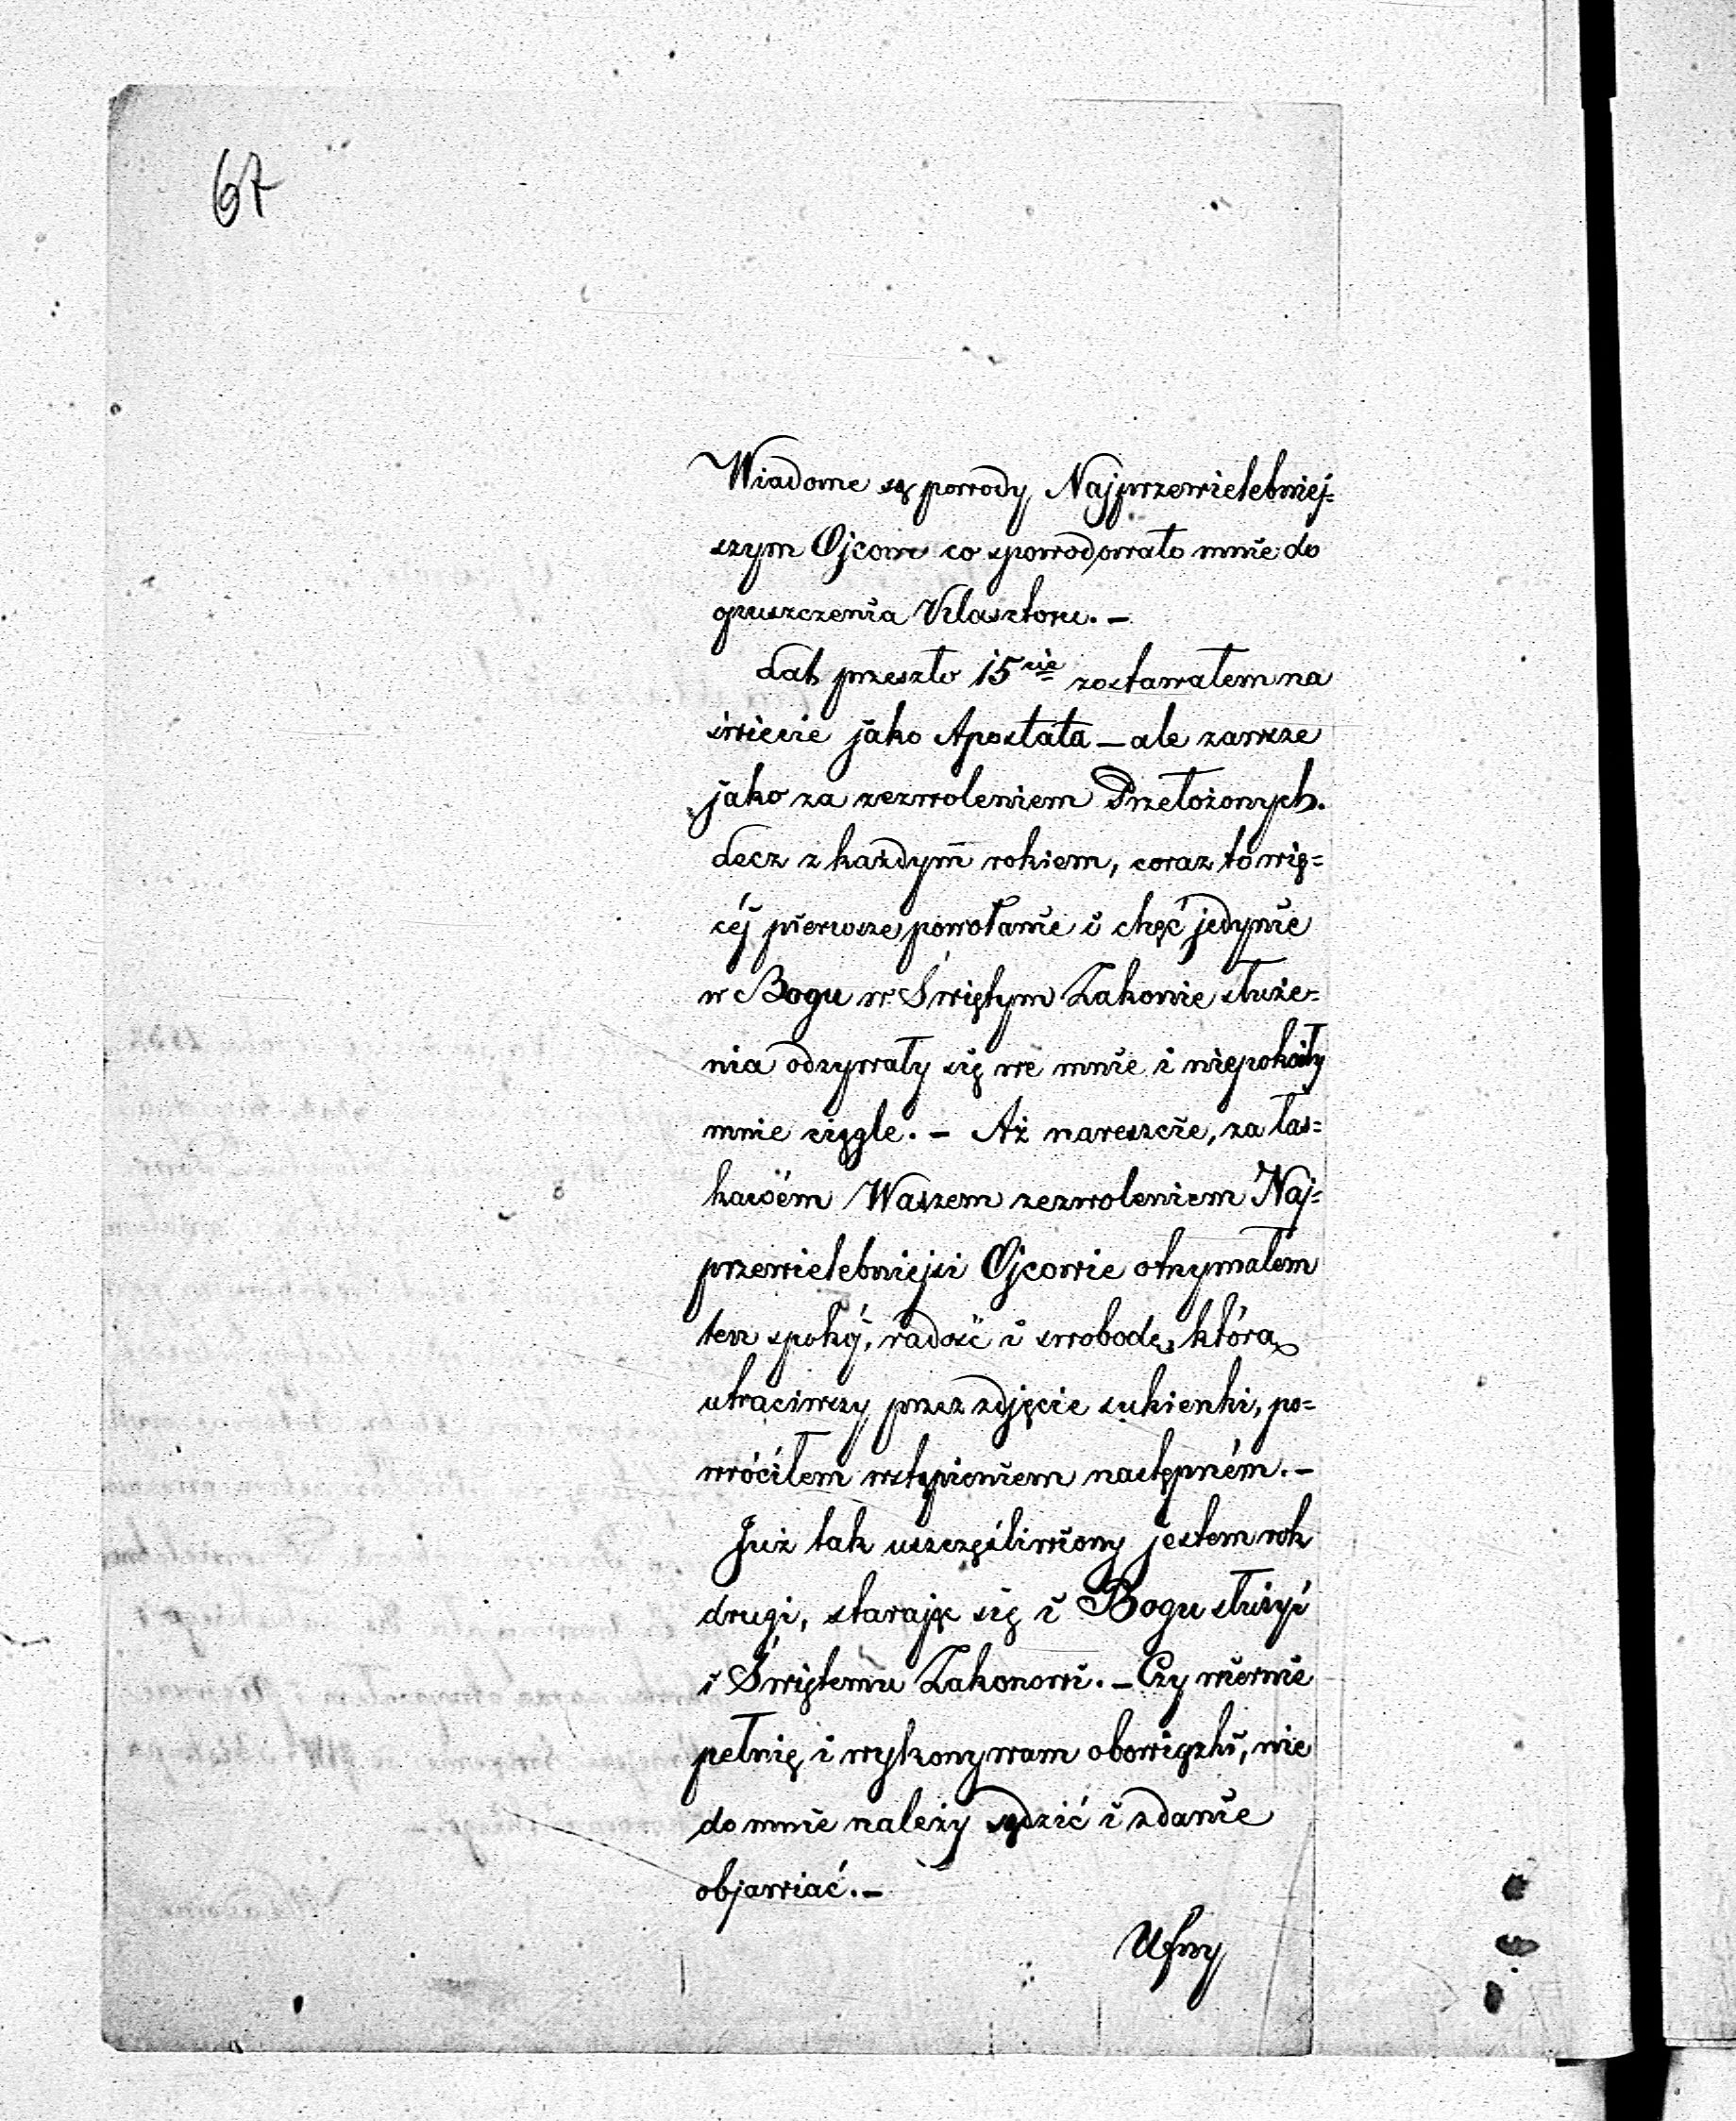 67
Wiadome są powody Najprzewielebniej=
szym Ojcom co spowodowało mnie do
opuszczenia Klasztoru. —
Lat przeszło 15cie zostawałem na
świecie jako Apostata — ale zawsze
jako za zezwoleniem Przełożonych.
Lecz z każdym rokiem, coraz to wię=
céj pierwsze powołanie i chęć jedynie
w Bogu w Świętym Zakonie służe=
nia odzywały się we mnie i niepokoiły
mnie ciągle. — Aż nareszcie, za łas=
kawém Waszem zezwoleniem Naj=
przewielebniejsi Ojcowie otrzymałem
ten spokój, radość i swobodę, którą
utraciwszy przez zdjęcie sukienki, po=
wróciłem wstąpieniem następném. —
Już tak uszczęśliwiony jestem rok
drugi, starając się i Bogu służyć
i Świętemu Zakonowi. — Czy wiernie
pełnię i wykonywam obowiązki, nie
do mnie należy sądzić i zdanie
objawiać. —
Ufny